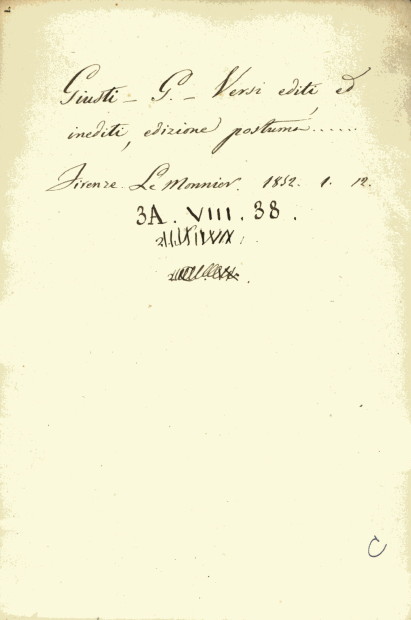 Giusti - G. - Versi editi, ed
inediti, edizione postuma......
Firenze. Le Monnier. 1852. 1. 12.
3A. VIII. 38.
C